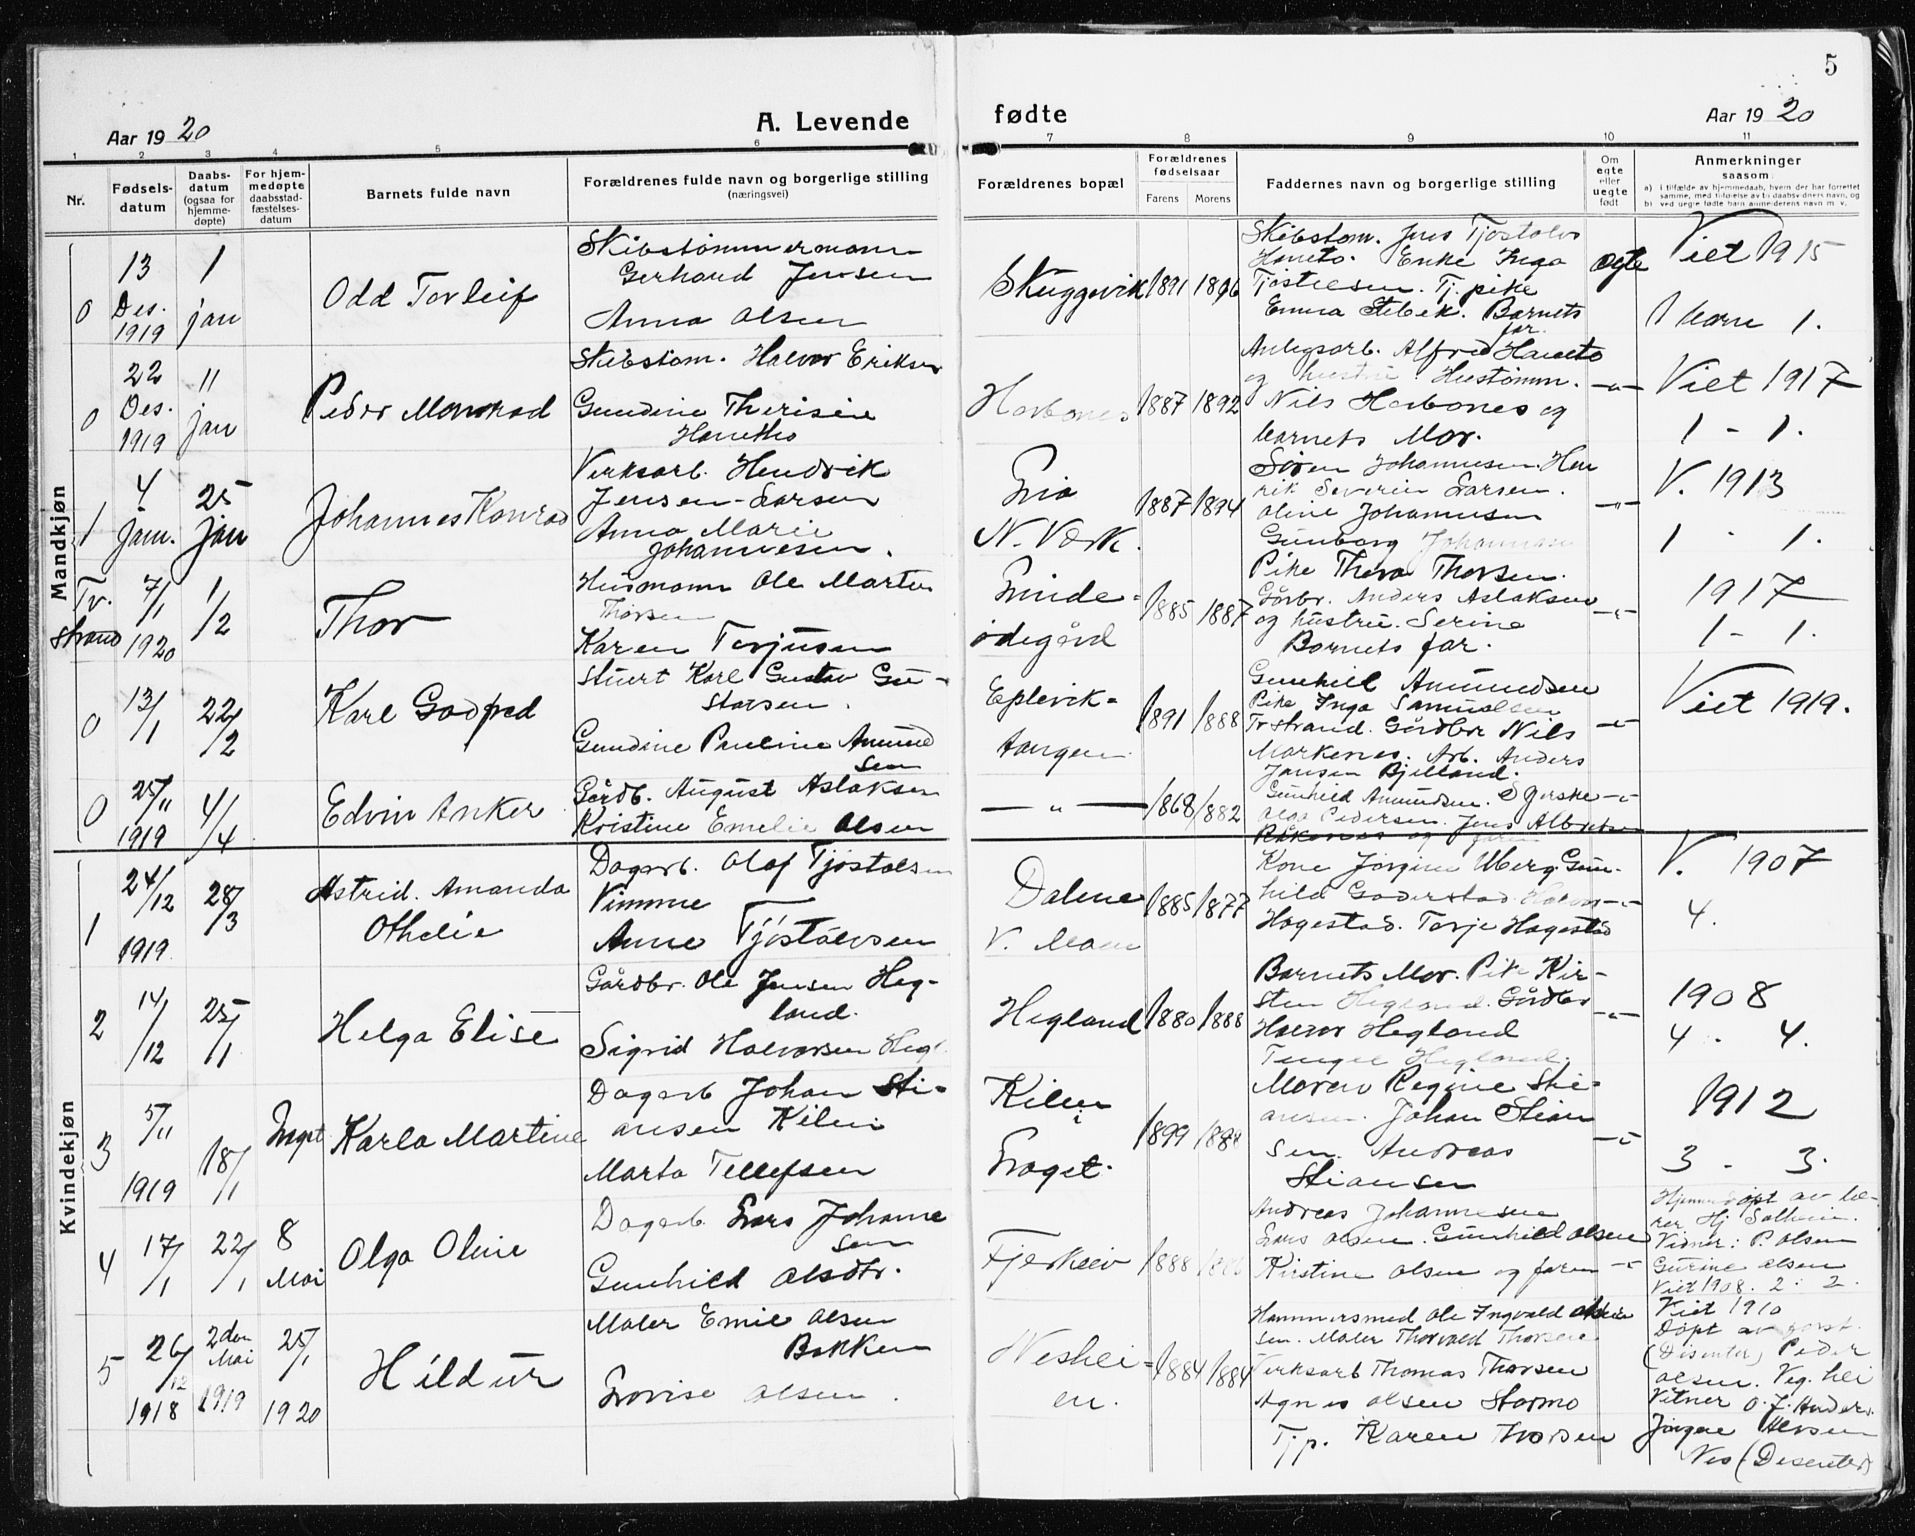 5
Aar 1920
A. Levende
fødte
Aar 1920
1 2 3 4 5 6 7 8 9 10 11
Nr.
Fødsels-
datum
Daabs-
datum
(ogsaa for
hjemme-
døpte)
For hjem-
medøpte
daabsstad-
fæstelses-
datum
Barnets fulde navn
Forældrenes fulde navn og borgerlige stilling
(næringsvei)
Forældrenes bopæl
Forældrenes
fødselsaar
Farens
Morens
Faddernes navn og borgerlige stilling
Om
egte
eller
uegte
født
Anmerkninger
saasom:
a) i tilfælde av hjemmedaab, hvem der har forrettet
samme, med tilføielse av daabsvidners navn, og
b) ved uegte fødte barn anmelderens navn m. v.
Mandkjøn
0
13
Des.
1919
1
jan
Odd Torleif
Skibstømmermann
Gerhard Jensen
Anna Olsen
Skuggevik
1891
1896
Skibstøm. Jens Tjøstolvs
Haneto. Enke Inga
Tjøstelsen. Tj. pike
Emma Stebek. Barnets
far.
egte
Viet 1915
1 barn 1.
0
22
Des.
1919
11
jan
Peder Monrad
Skibstøm. Halvor Eriksen
Gundine Therisie
Hanetho
Havbones
1887
1892
Anlegsarb. Alfred Haneto
og hustru. Hustømm.
Nils Havbones og
barnets Mor.
-"-
Viet 1917
1 - 1.
1
4
Jan.
25
jan
Johannes Konrad
Verksarb. Hendrik
Jensen-Larsen
Anna Marie
Johannesen.
Lia
N. Værk.
1887
1894
Søren Johannesen. Hen
rik Severin Larsen.
Oline Johannesen
Gunborg Johannesen
-"-
V. 1913
1 - 1.
Tv.
strand
7/1
1920
1/2
Thor
Husmann Ole Martin
Thorsen
Karen Terjusen
Grinde-
ødegård
1885
1887
Pike Thora Thorsen.
Gårbr. Anders Aslaksen
og hustru. Serine
Barnets far.
-"-
1917
1 - 1.
0
13/1
22/2
Karl Godfred
Stuert Karl Gustav Gu-
stavsen.
Gundine Pauline Amund
sen
Eplevik-
tangen
1891
1888
Gunhild Amundsen
Pike Inga Samuelsen
Tv strand. Gårdbr Nils
Markenes. Arb. Anders
Jansen Bjelland.
-"-
Viet 1919.
0
25/11
1919
4/4
Edvin Anker
Gårdb. August Aslaksen
Kristine Emelie Olsen
— " —
1868
1882
Gunhild Amundsen.
Olga Pedersen. Jens Albretsen
Råkenes og faren
-"-
Kvindekjøn
1
24/12
1919
28/3
Astrid. Amanda
Othelie
Dagarb. Olaf Tjøstolsen
Vimme
Anne Tjøstolvsen
Dalene
V. Moen
1885
1877
Kone Jørgine Uberg Gun-
hild Goderstad. Halvor
Hagestad. Terje Hagestad
-"-
V. 1907
4.
2
14/12
25/1
Helga Elise
Gårdbr. Ole Jensen Heg-
land.
Sigrid Halvorsen Hegl.
Hegland
1880
1888
Barnets Mor. Pike Kir-
sten Hegland. Gårdbr
Halvor Hegland
Hegland.
-"-
1908
4. 4.
3
5/11
1919
18/1
Karla Martine
Dagarb Johan Sti-
ansen Kilen
Marta Tellefsen
Kilen
i
Laget.
1899
Moren Regine Sti-
ansen. Johan Stian
sen. Andreas
Stiansen
-"-
1912
3 - 3.
4
17/1
22/1
8
Mai
Olga Oline
Dagarb. Lars Johanne
sen
Gunhild Olsdtr.
Fjerkleiv
1888
Andreas Johannesen
Lars Olsen. Gunhild Olsen
Kirstine Olsen og faren
-"-
Hjemmedøpt av læ-
rer Hj Solheim.
Vidner: P. Olsen
Gurine Olsen
Viet 1908. 2 : 2.
5
26/12
1918
2den
Mai
1919
25/1
1920
Hildur
Maler Emil Olsen
Bakken
Lovise Olsen.
Neshei-
en.
1884
1884
Hammersmed Ole Ingvald
sen. Maler Thorvald Thorsen
Verksarb Thomas Thorsen
Agnes Olsen Stormo
Tj p. Karen Thorsen
Viet 1910
Døpt av forst.
(Disenter) Peder
Olsen. Veg. hei
Vitner O. J. Anders.
Jørgine Alvsen
Nes (Disenter)